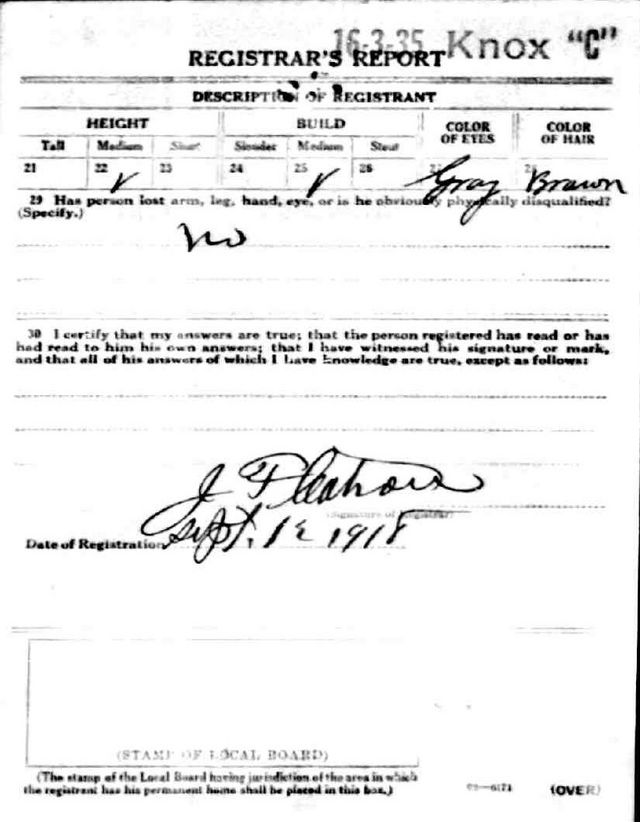 16-3-35 Knox "C"
REGISTRAR'S REPORT
DESCRIPTION OF REGISTRANT
HEIGHT BUILD COLOR OF EYES COLOR OF HAIR
Tall Medium Short Slender Medium Stout
21 22 ✓ 23 24 25 ✓ 26 27 Gray 28 Brown
29 Has person lost arm, leg, hand, eye, or is he obviously physically disqualified?
(Specify.)
No
30 I certify that my answers are true; that the person registered has read or has
had read to him his own answers; that I have witnessed his signature or mark,
and that all of his answers of which I have knowledge are true, except as follows:
J
(Signature of Registrar)
Date of Registration Sept. 12 1918
(STAMP OF LOCAL BOARD)
(The stamp of the Local Board having jurisdiction of the area in which
the registrant has his permanent home shall be placed in this box.)
03—6171 (OVER)